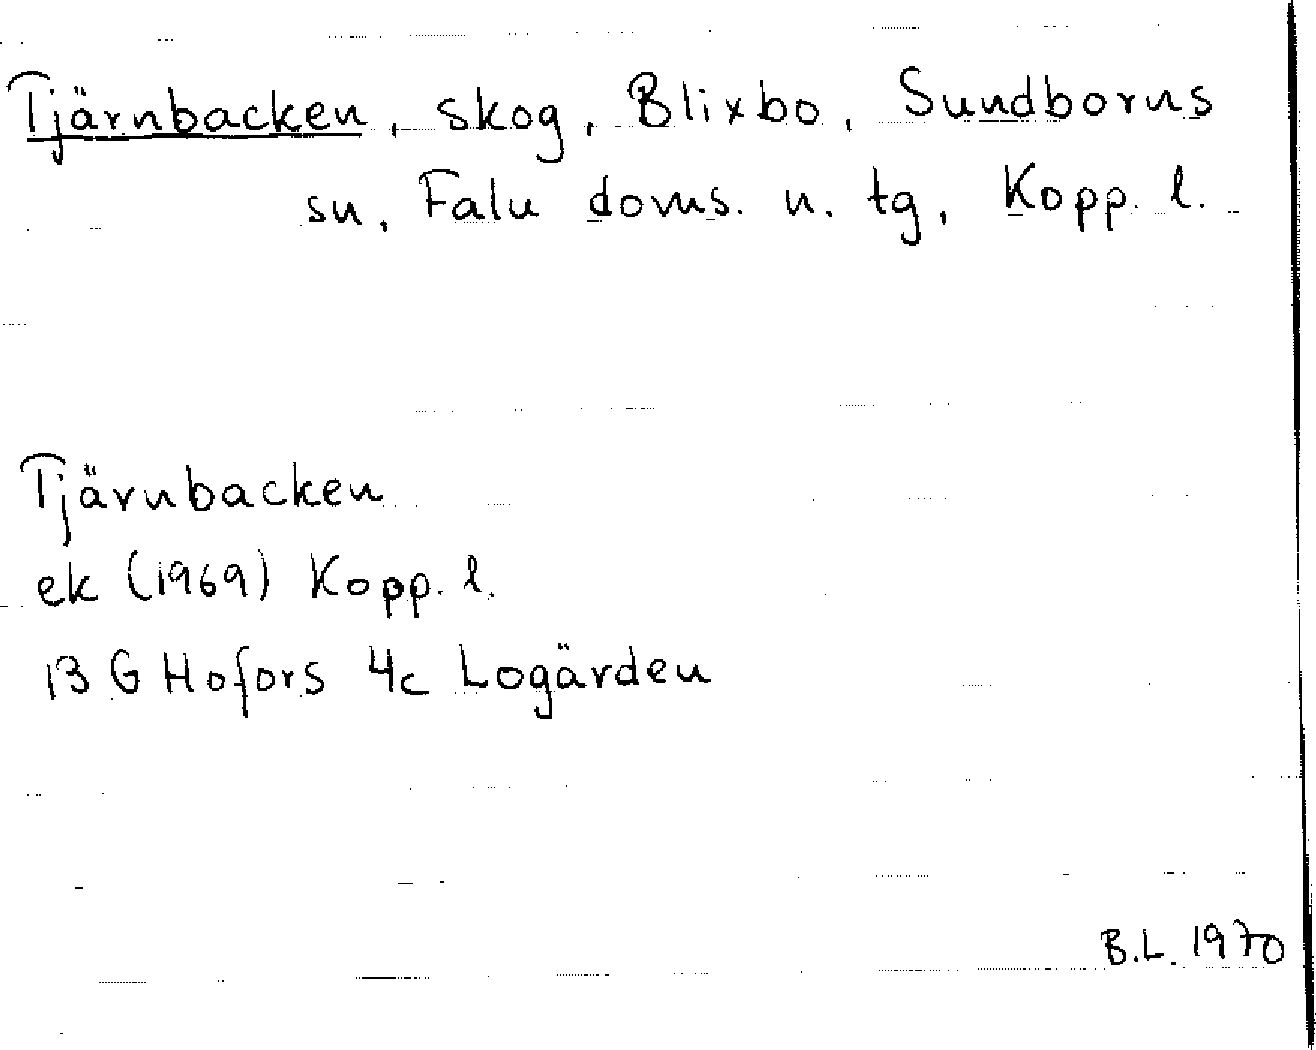 Tjärnbacken, skog, Blixbo, Sundborns
sn, Falu doms. n. tg, Kopp. l.
Tjärnbacken
ek (1969) Kopp. l.
13 G Hofors 4c Logärden
B.L. 1970